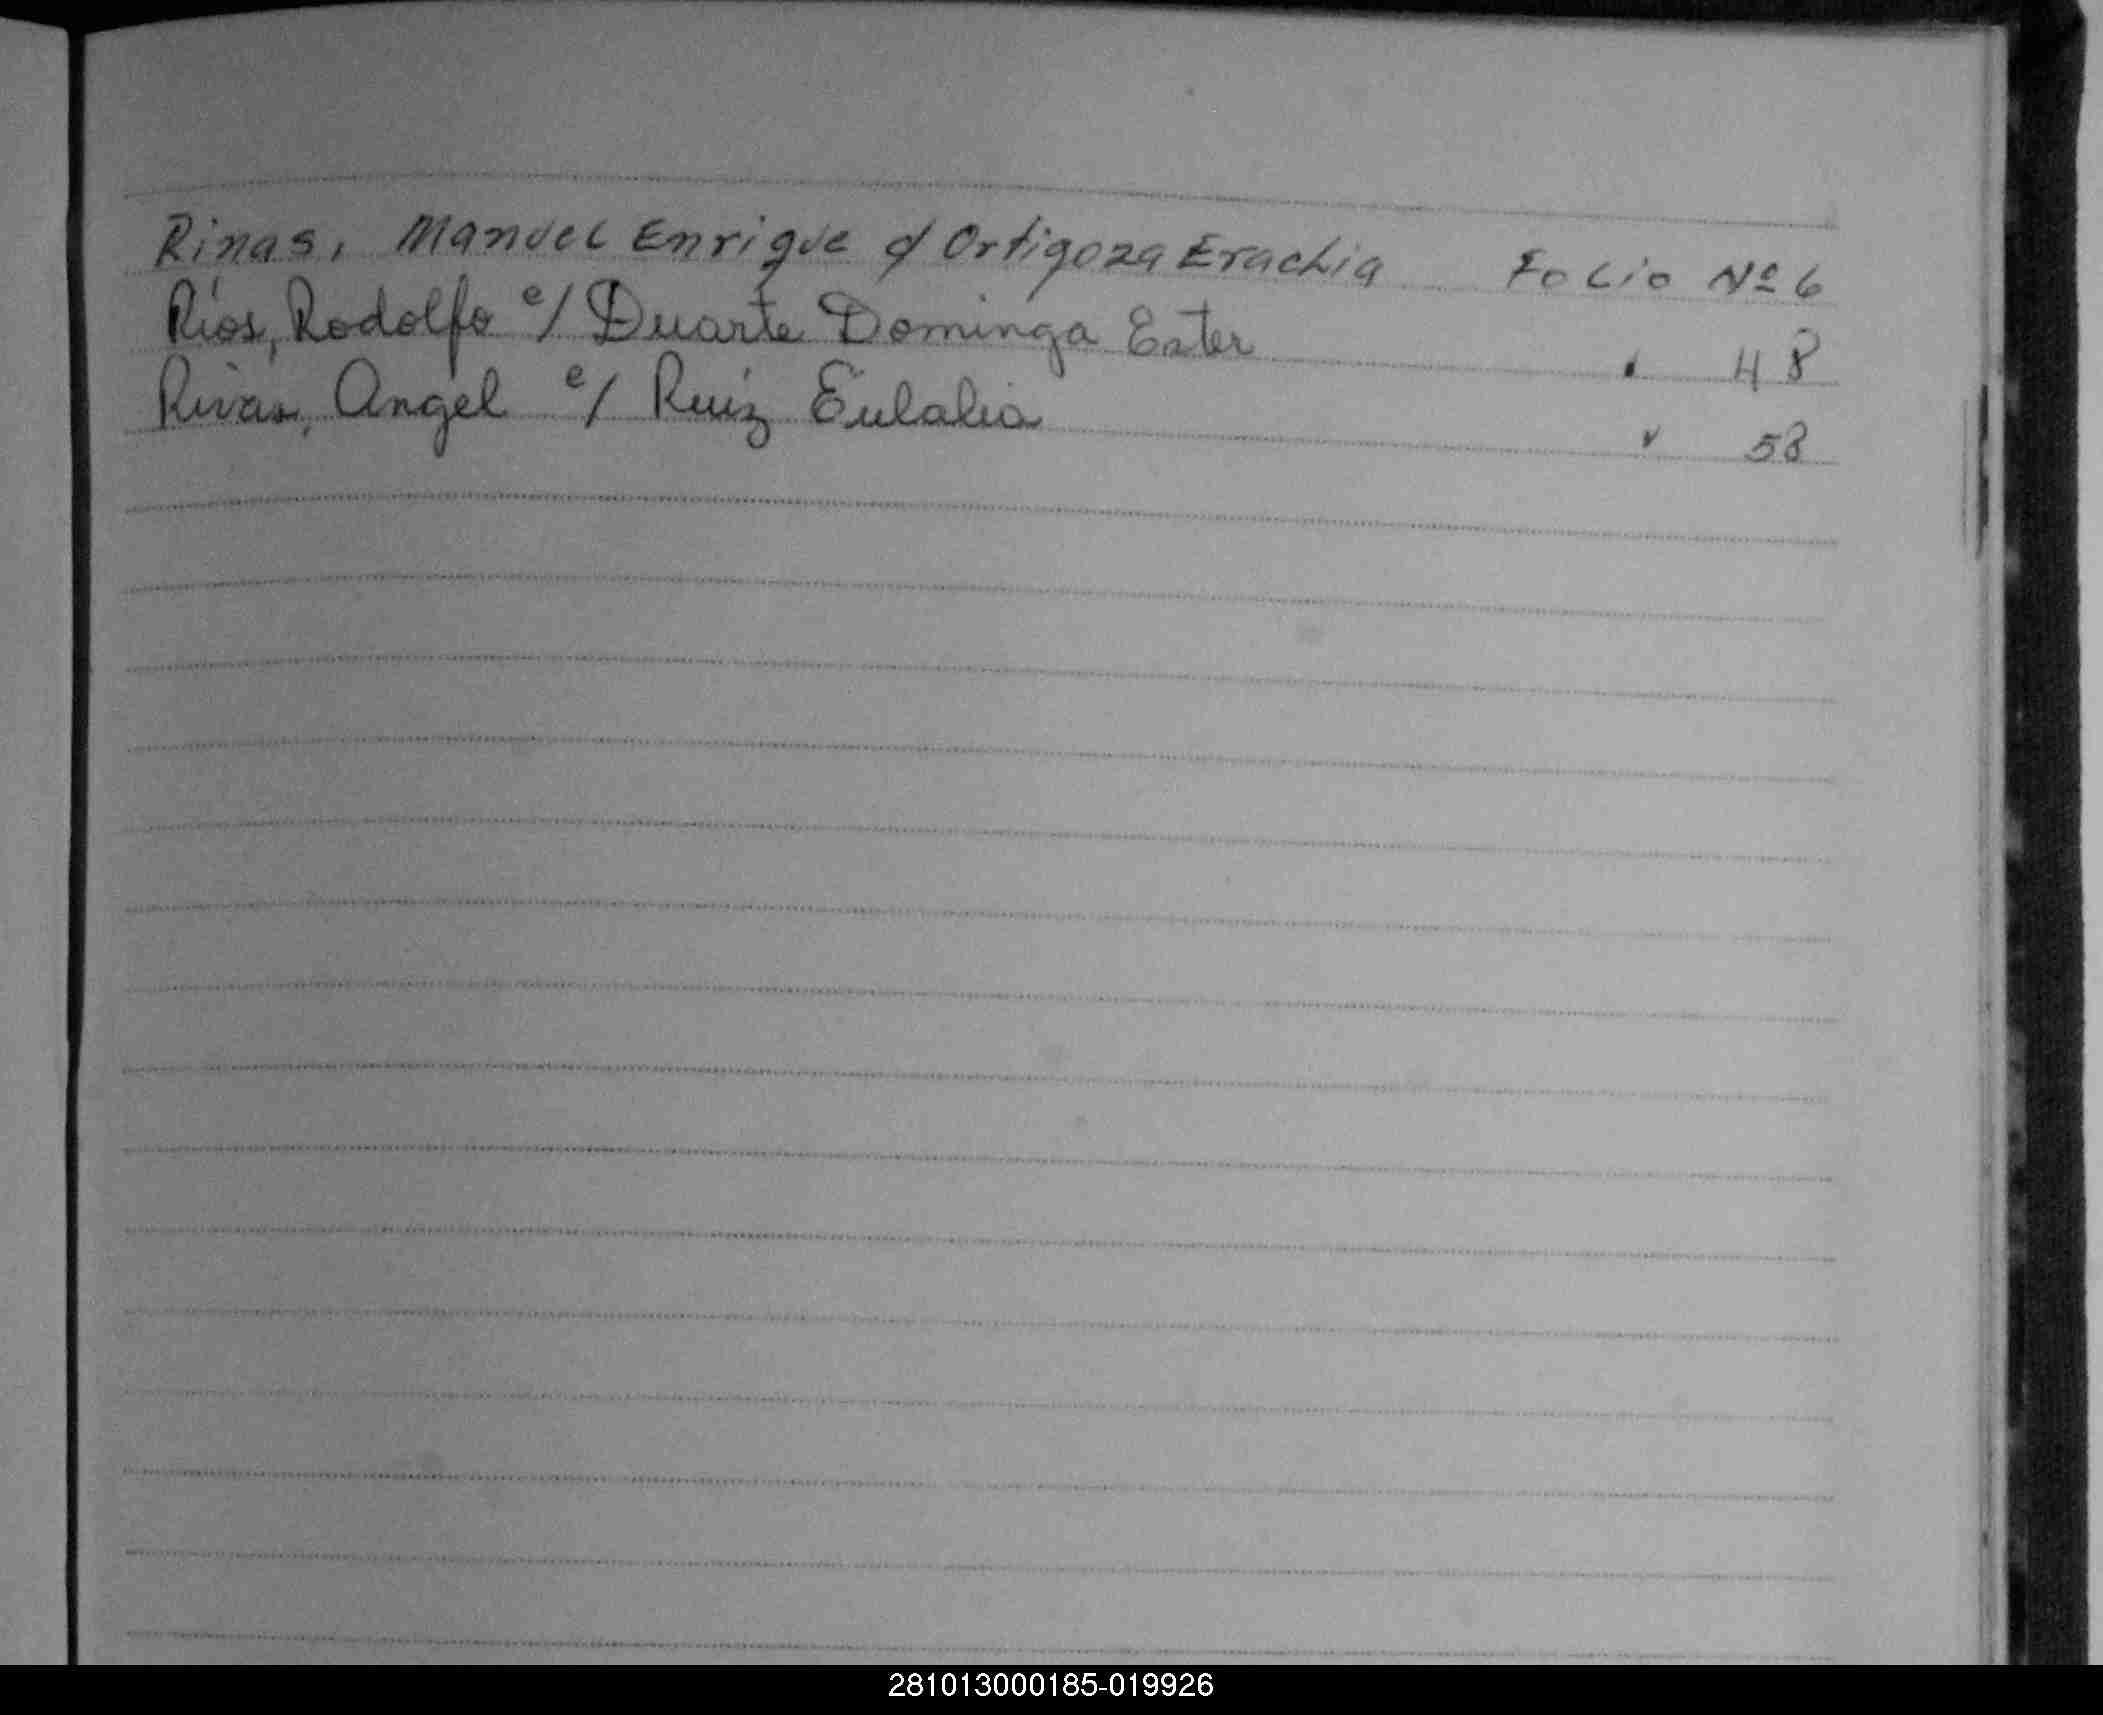 Rinas, Manuel Enrique c/ Ortigoza Erachia Folio Nº 6
Ríos, Rodolfo c/ Duarte Dominga Ester " 48
Rivas, Angel c/ Ruiz Eulalia " 58
281013000185-019926